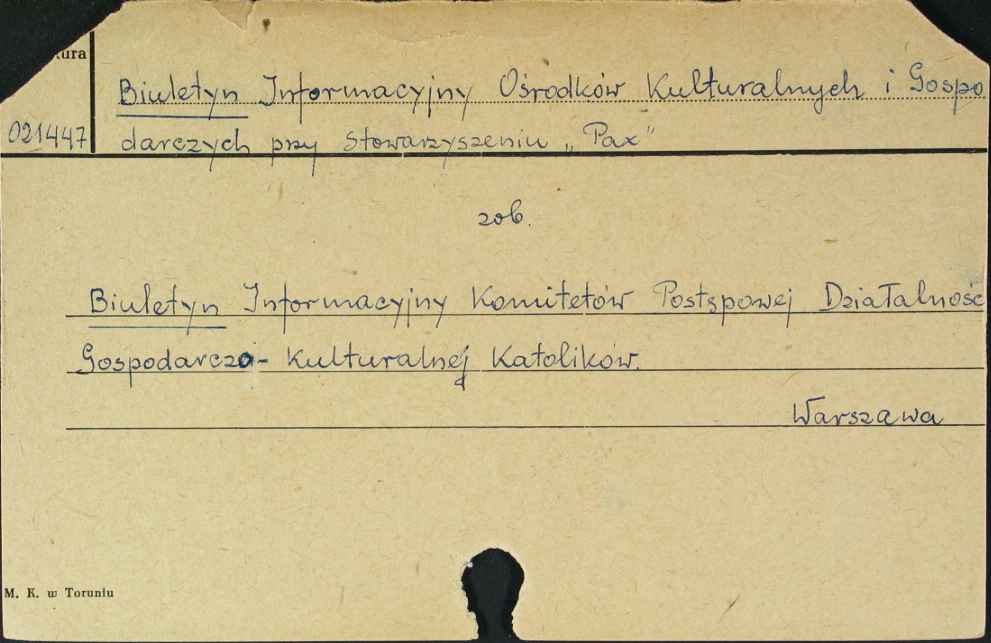 kura
Biuletyn Informacyjny Ośrodków Kulturalnych i Gospo
021447
darczych przy Stowarzyszeniu „Pax"
zob.
Biuletyn Informacyjny Komitetów Postępowej Działalność
Gospodarczo-Kulturalnej Katolików.
Warszawa
M. K. w Toruniu